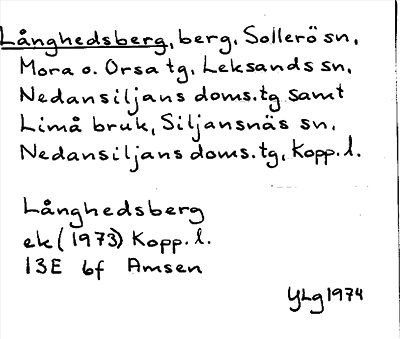 Långhedsberg, berg, Sollerö sn,
Mora o. Orsa tg, Leksands sn,
Nedansiljans doms.tg samt
Limå bruk, Siljansnäs sn.
Nedansiljans doms.tg, Kopp.l.
Långhedsberg
ek (1973) Kopp.l.
13E 6f Amsen
YLg 1974